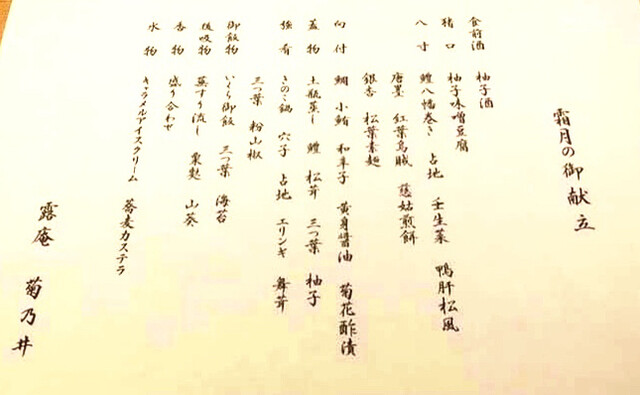 霜月の御献立
食前酒 柚子酒
猪口 柚子味噌豆腐
八寸 鱧八幡巻き 占地 壬生菜 鴨肝松風
唐墨 紅葉烏賊 慈姑煎餅
銀杏 松葉素麺
向付 鯛 小鮪 和辛子 黄身醤油 菊花酢漬
蓋物 土瓶蒸し 鱧 松茸 三つ葉 柚子
強肴 きのこ鍋 穴子 占地 エリンギ 舞茸
三つ葉 粉山椒
御飯物 いくら御飯 三つ葉 海苔
後吸物 蕪すり流し 粟麩 山葵
香物 盛り合わせ
水物 キャラメルアイスクリーム 蕎麦カステラ
露庵 菊乃井